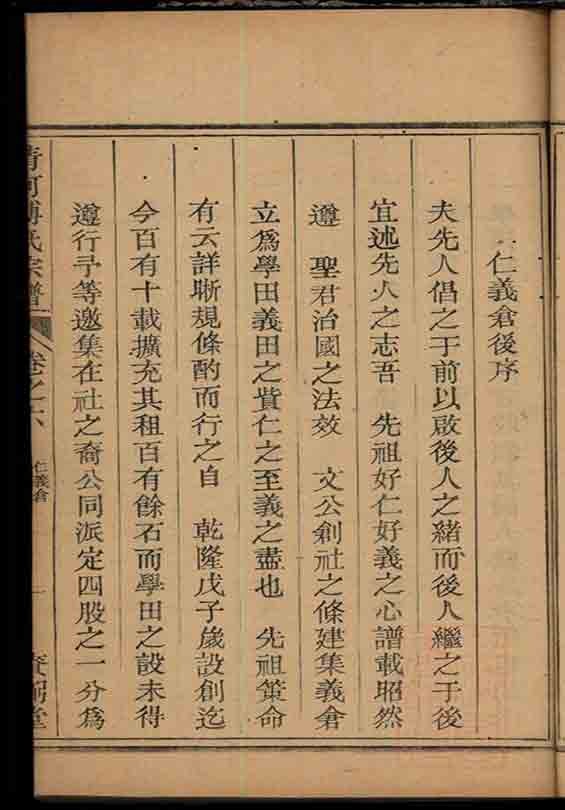 仁義倉後序
夫先人倡之于前以啟後人之緒而後人繼之于後
宜述先人之志吾 先祖好仁好義之心譜載昭然
遵 聖君治國之法效 文公創社之條建集義倉
立爲學田義田之貲仁之至義之盡也 先祖策命
有云詳晰規條酌而行之自 乾隆戊子歲設創迄
今百有十載擴充其租百有餘石而學田之設未得
遵行予等邀集在社之裔公同派定四股之一分爲
清河傅氏宗譜 卷之六 仁義倉 一 堂